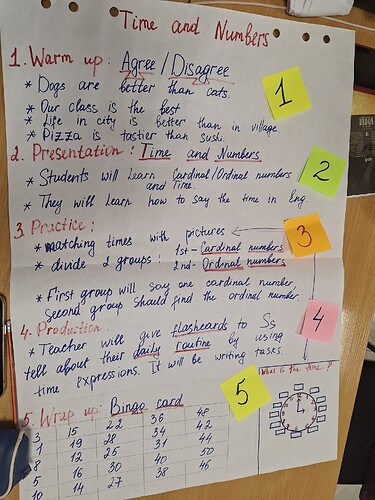 Time and Numbers
1. Warm up: Agree / Disagree
* Dogs are better than cats.
* Our class is the best
* Life in city is better than in village
* Pizza is tastier than sushi.
1
2. Presentation: Time and Numbers
* Students will learn Cardinal/Ordinal numbers
and Time.
* They will learn how to say the time in Eng
2
3. Practice:
* matching times with pictures
* divide 2 groups: 1st - Cardinal numbers
2nd - Ordinal numbers
* First group will say one cardinal number,
second group should find the ordinal number.
3
4. Production:
* Teacher will give flashcards to Ss
tell about their daily routine by using
time expressions. It will be writing tasks.
4
5. Wrap up: Bingo card
3 15 22 36 48
1 19 28 34 42
8 12 25 31 44
5 16 30 40 50
10 14 27 38 46
5
What is the time?